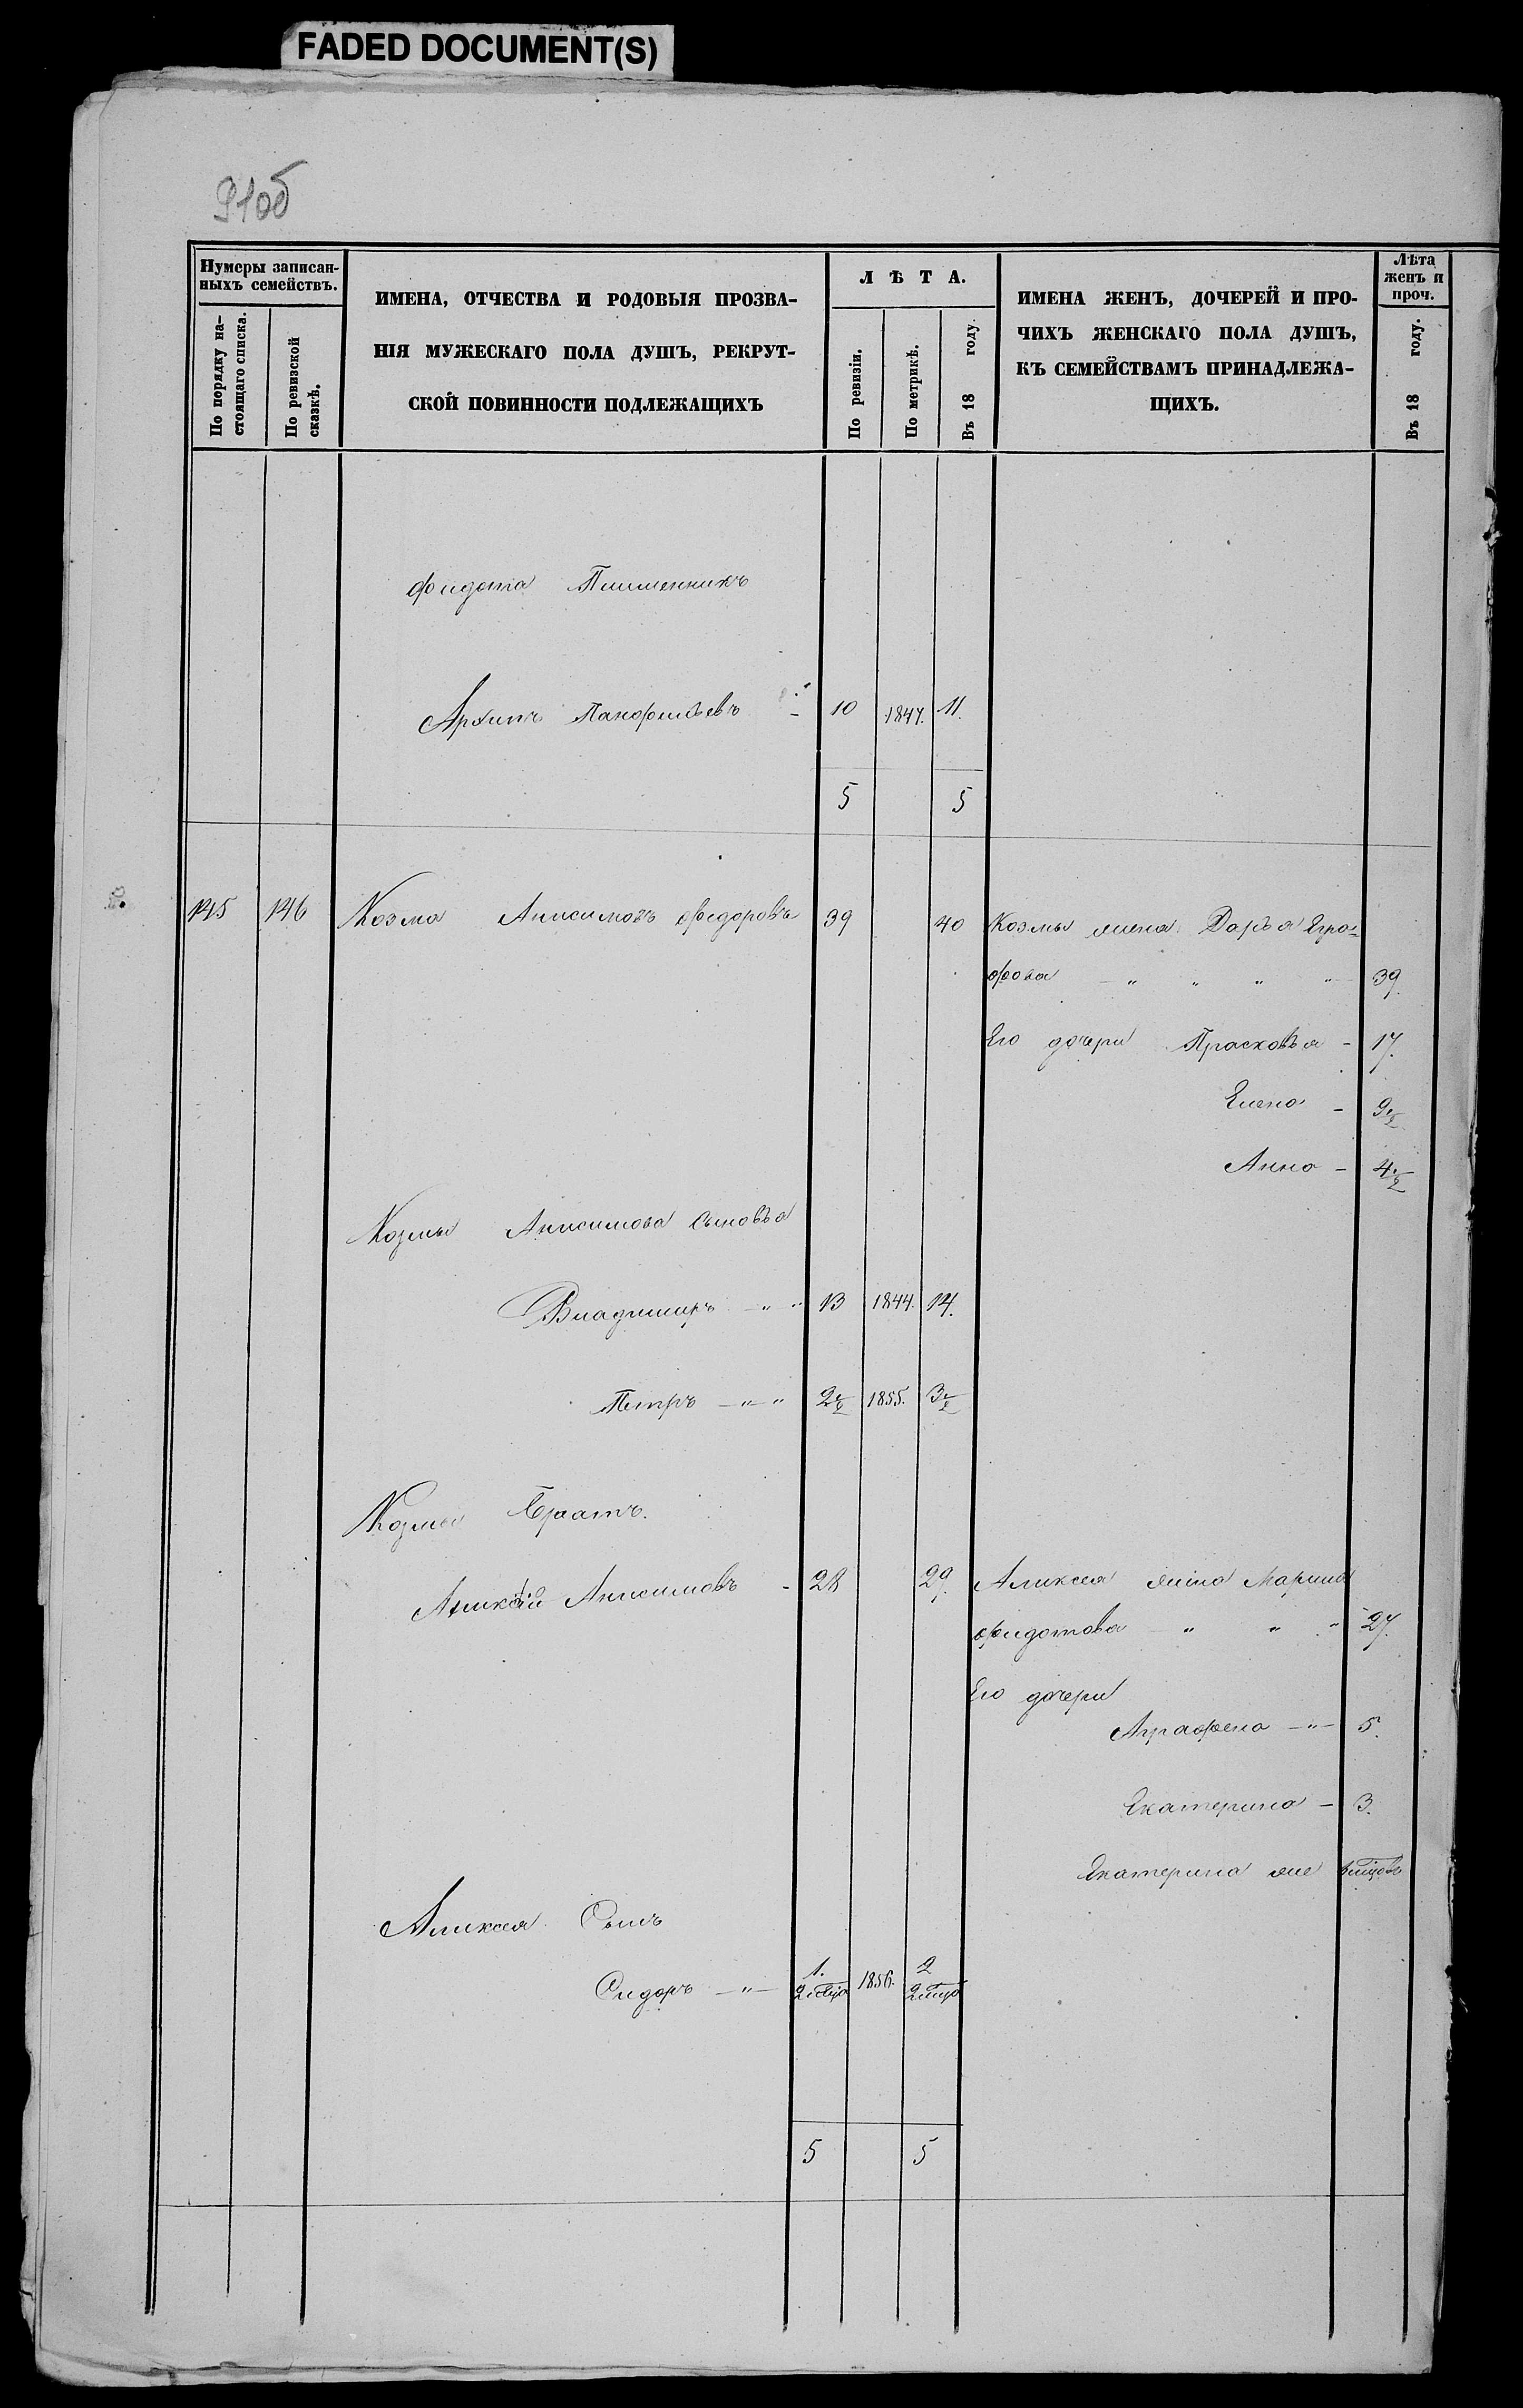 FADED DOCUMENT(S)
91об
Нумеры записан-
ныхъ семействъ.
По порядку на-
стоящаго списка.
По ревизской
сказкѣ.
ИМЕНА, ОТЧЕСТВА И РОДОВЫЯ ПРОЗВА-
НІЯ МУЖЕСКАГО ПОЛА ДУШЪ, РЕКРУТ-
СКОЙ ПОВИННОСТИ ПОДЛЕЖАЩИХЪ
ЛѢТА.
По ревизіи.
По метрикѣ.
Въ 18 году.
ИМЕНА ЖЕНЪ, ДОЧЕРЕЙ И ПРО-
ЧИХЪ ЖЕНСКАГО ПОЛА ДУШЪ,
КЪ СЕМЕЙСТВАМЪ ПРИНАДЛЕЖА-
ЩИХЪ.
Лѣта
женъ и
проч.
Въ 18 году.
Фидота
Архипъ Панфильевъ - 10 1847. 11.
5 5
145 146 Козма Анисимовъ Федоровъ 39 40 Козмы жена Дарья Егро-
фова - " " " " 39.
Его дочери Прасковья - 17.
Елена - 9½
Анна - 4½
Козмы Анисимова сыновья
Владимиръ - " " 13 1844. 14.
Петръ - " - " 2½ 1855. 3½
Козмы Братъ.
Аликсѣй Анисимовъ - 28 29. Аликсея жина Марина
Фидотова - " " " 27.
Его дочери
Аграфена - " - 5.
Екатерина - 3.
Екатерина же
Аликсея Сынъ
Сидоръ - " - 1. 1856. 2
5 5